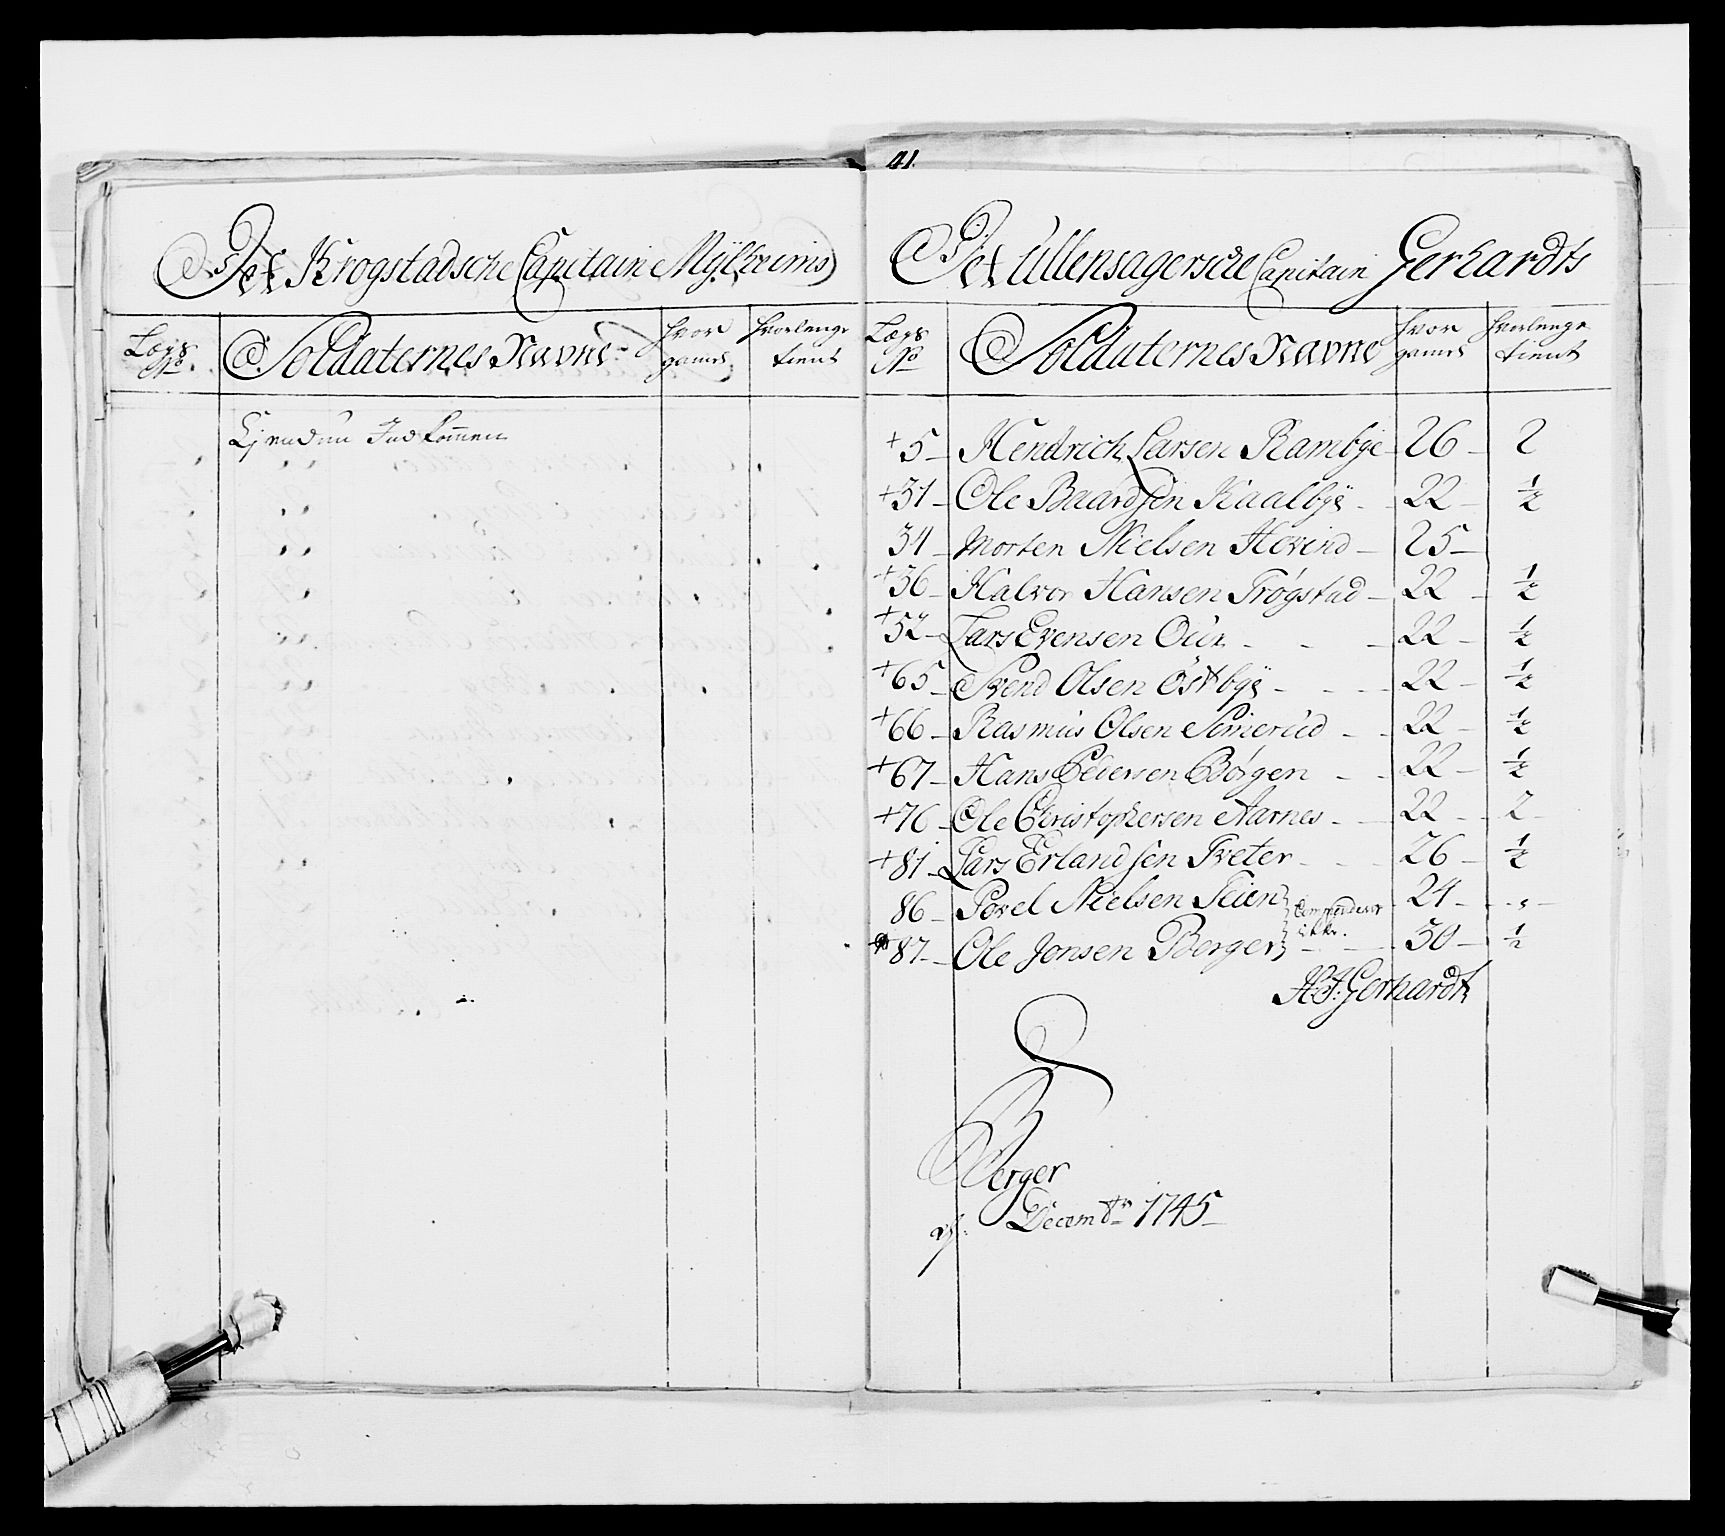 Det Krogstadsche Capitain Mylheims
Lægs No. Soldaternes Navne Hvor gamel Hvorlenge tient
Ejendnu Indkommen
41.
Det Ullensagersche Capitain Gerhardts
Lægs No Soldaternes Navne Hvor gamel Hvorlenge tient
+ 5 Hendrich Larsen Rambye 26 2
+ 31 Ole Baardsen Kaalbye 22 1/2
34 Morten Nielsen Hovind 25
+ 36 Halvor Hansen Trøgstad 22 1/2
+ 52 Lars Evensen 22 1/2
+ 65 Svend Olsen Østbye 22 1/2
+ 66 Rasmus Olsen Simerud 22 1/2
+ 67 Hans Pedersen Børgen 22 1/2
+ 76 Ole Christophersen Aarnes 22 2
+ 81 Lars Erlandsen Tveter 26 1/2
86 Povel Nielsen 24 „
87 Ole Jonsen Berger 30 1/2
ikke.
H. F. Gerhardt
Berger
Decembr 1745